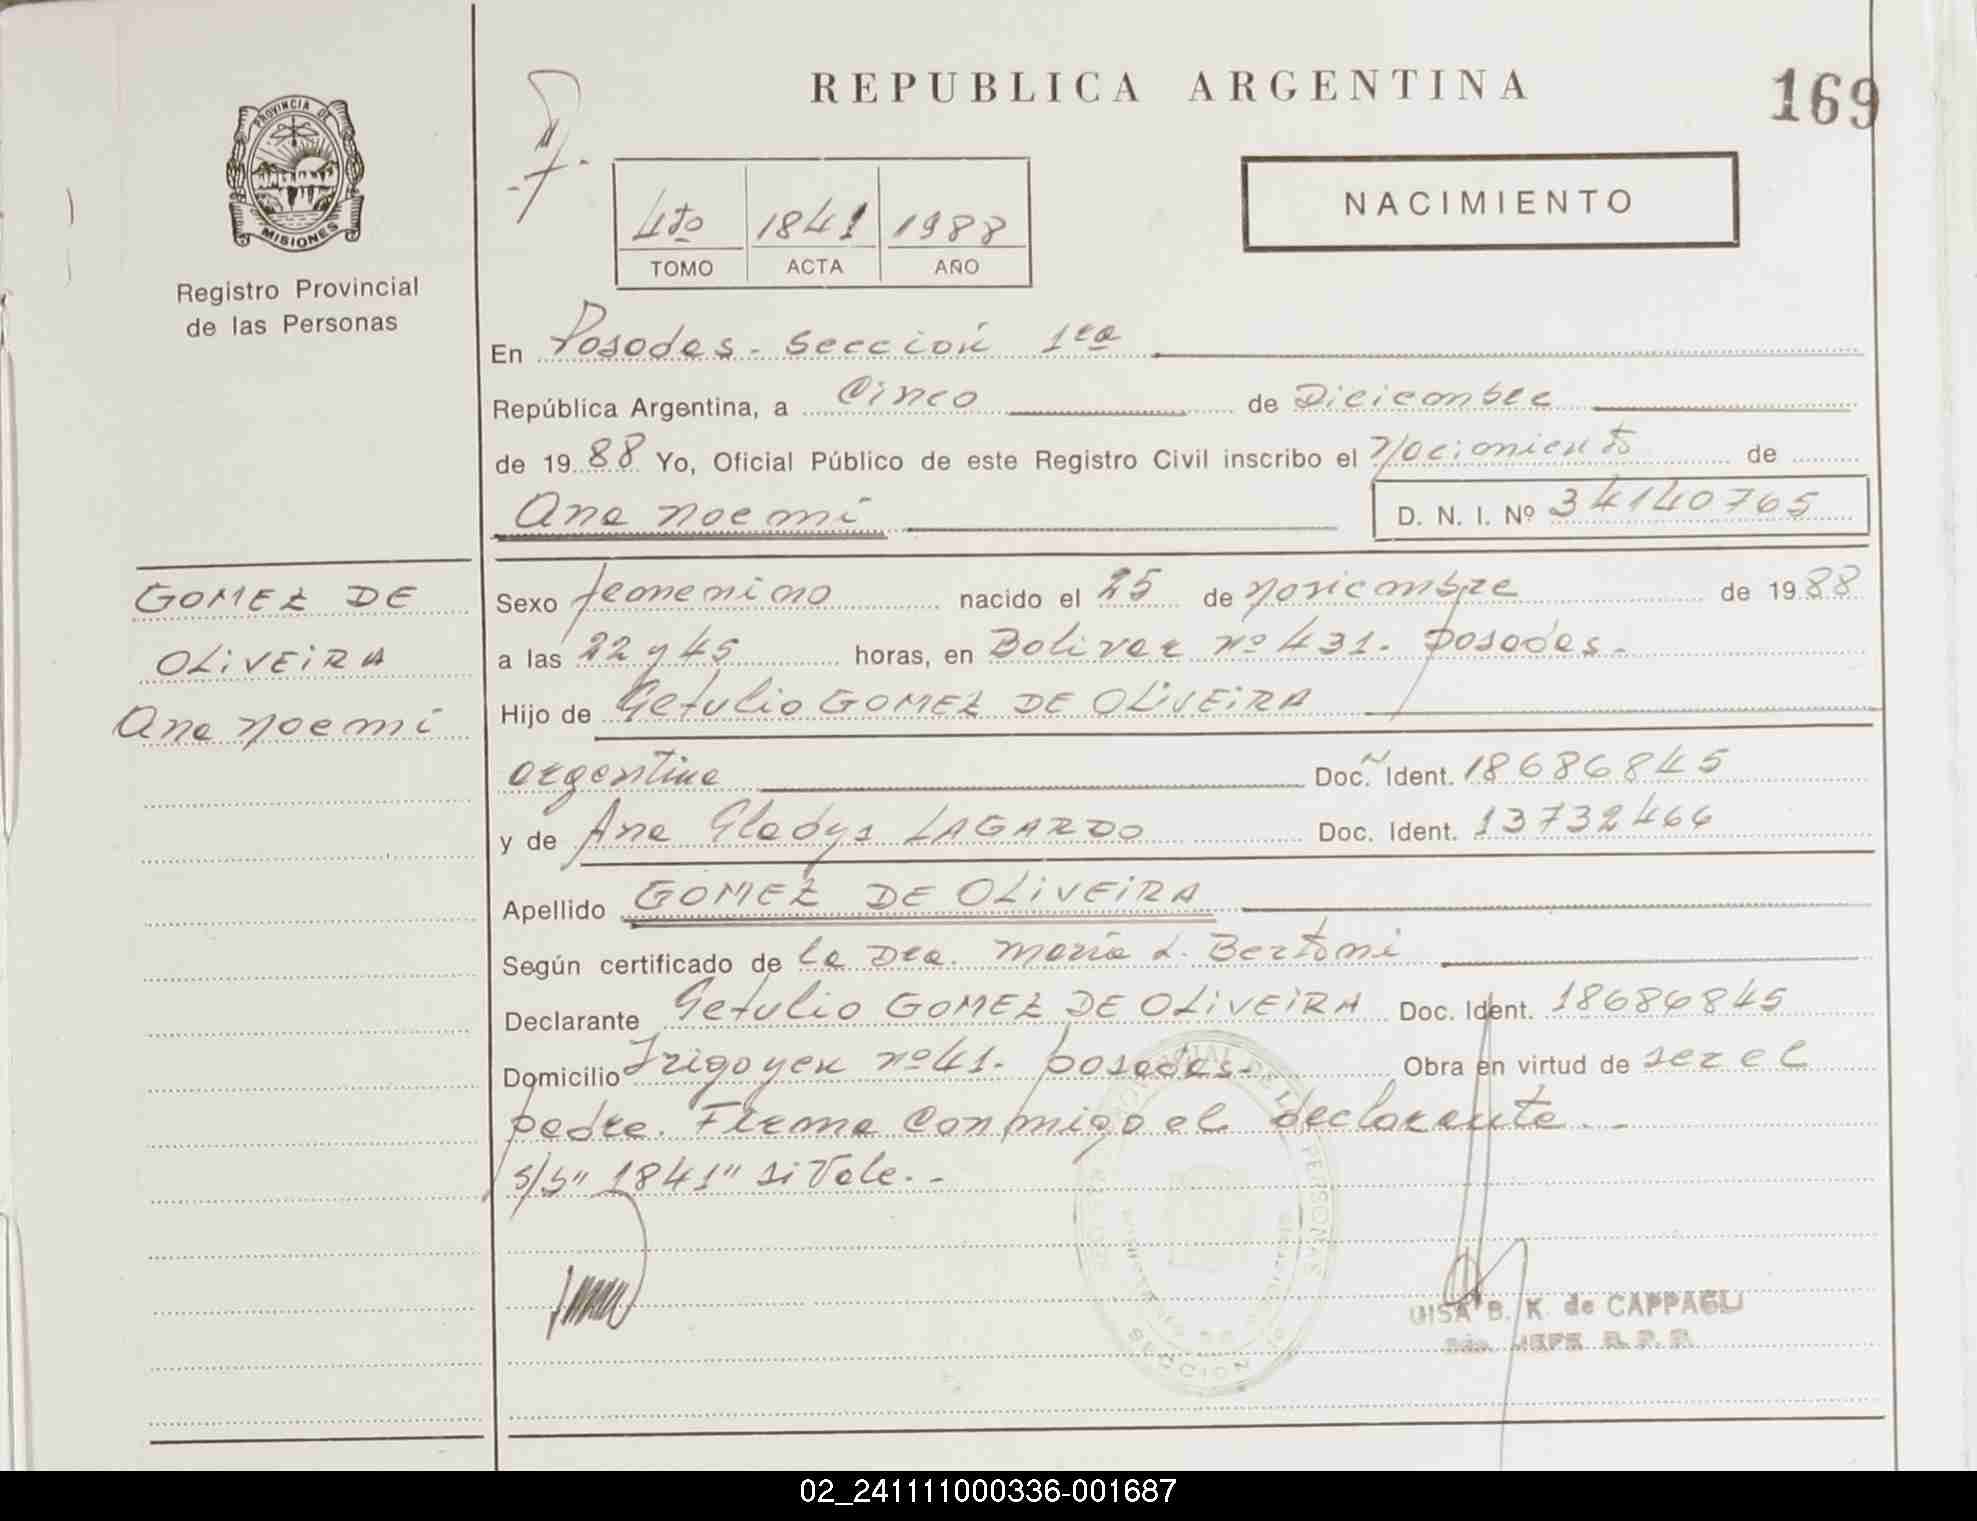 REPUBLICA ARGENTINA
169
PROVINCIA DE
MISIONES
Registro Provincial
de las Personas
4to 1841 1988
TOMO ACTA AÑO
NACIMIENTO
En Posadas - Sección 1ra
República Argentina, a Cinco de Diciembre
de 1988 Yo, Oficial Público de este Registro Civil inscribo el Nacimiento de
Ana Noemi D. N. I. Nº 34140765
GOMEZ DE
OLIVEIRA
Ana Noemi
Sexo femenino nacido el 25 de noviembre de 1988
a las 22 y 45 horas, en Bolivar nº 431. Posadas.
Hijo de Getulio GOMEZ DE OLIVEIRA
argentina Doc. Ident. 18686845
y de Ana Gladys LAGARDO Doc. Ident. 13732466
Apellido GOMEZ DE OLIVEIRA
Según certificado de la Dra. Maria L. Bertoni
Declarante Getulio GOMEZ DE OLIVEIRA Doc. Ident. 18686845
Domicilio Irigoyen nº 41. Posadas. Obra en virtud de ser el
padre. Firma conmigo el declarante.-
s/b" 1841" si Vale.-
SECCION
UISA B. K. de CAPPAGLI
JEFE R. P. P.
02_241111000336-001687